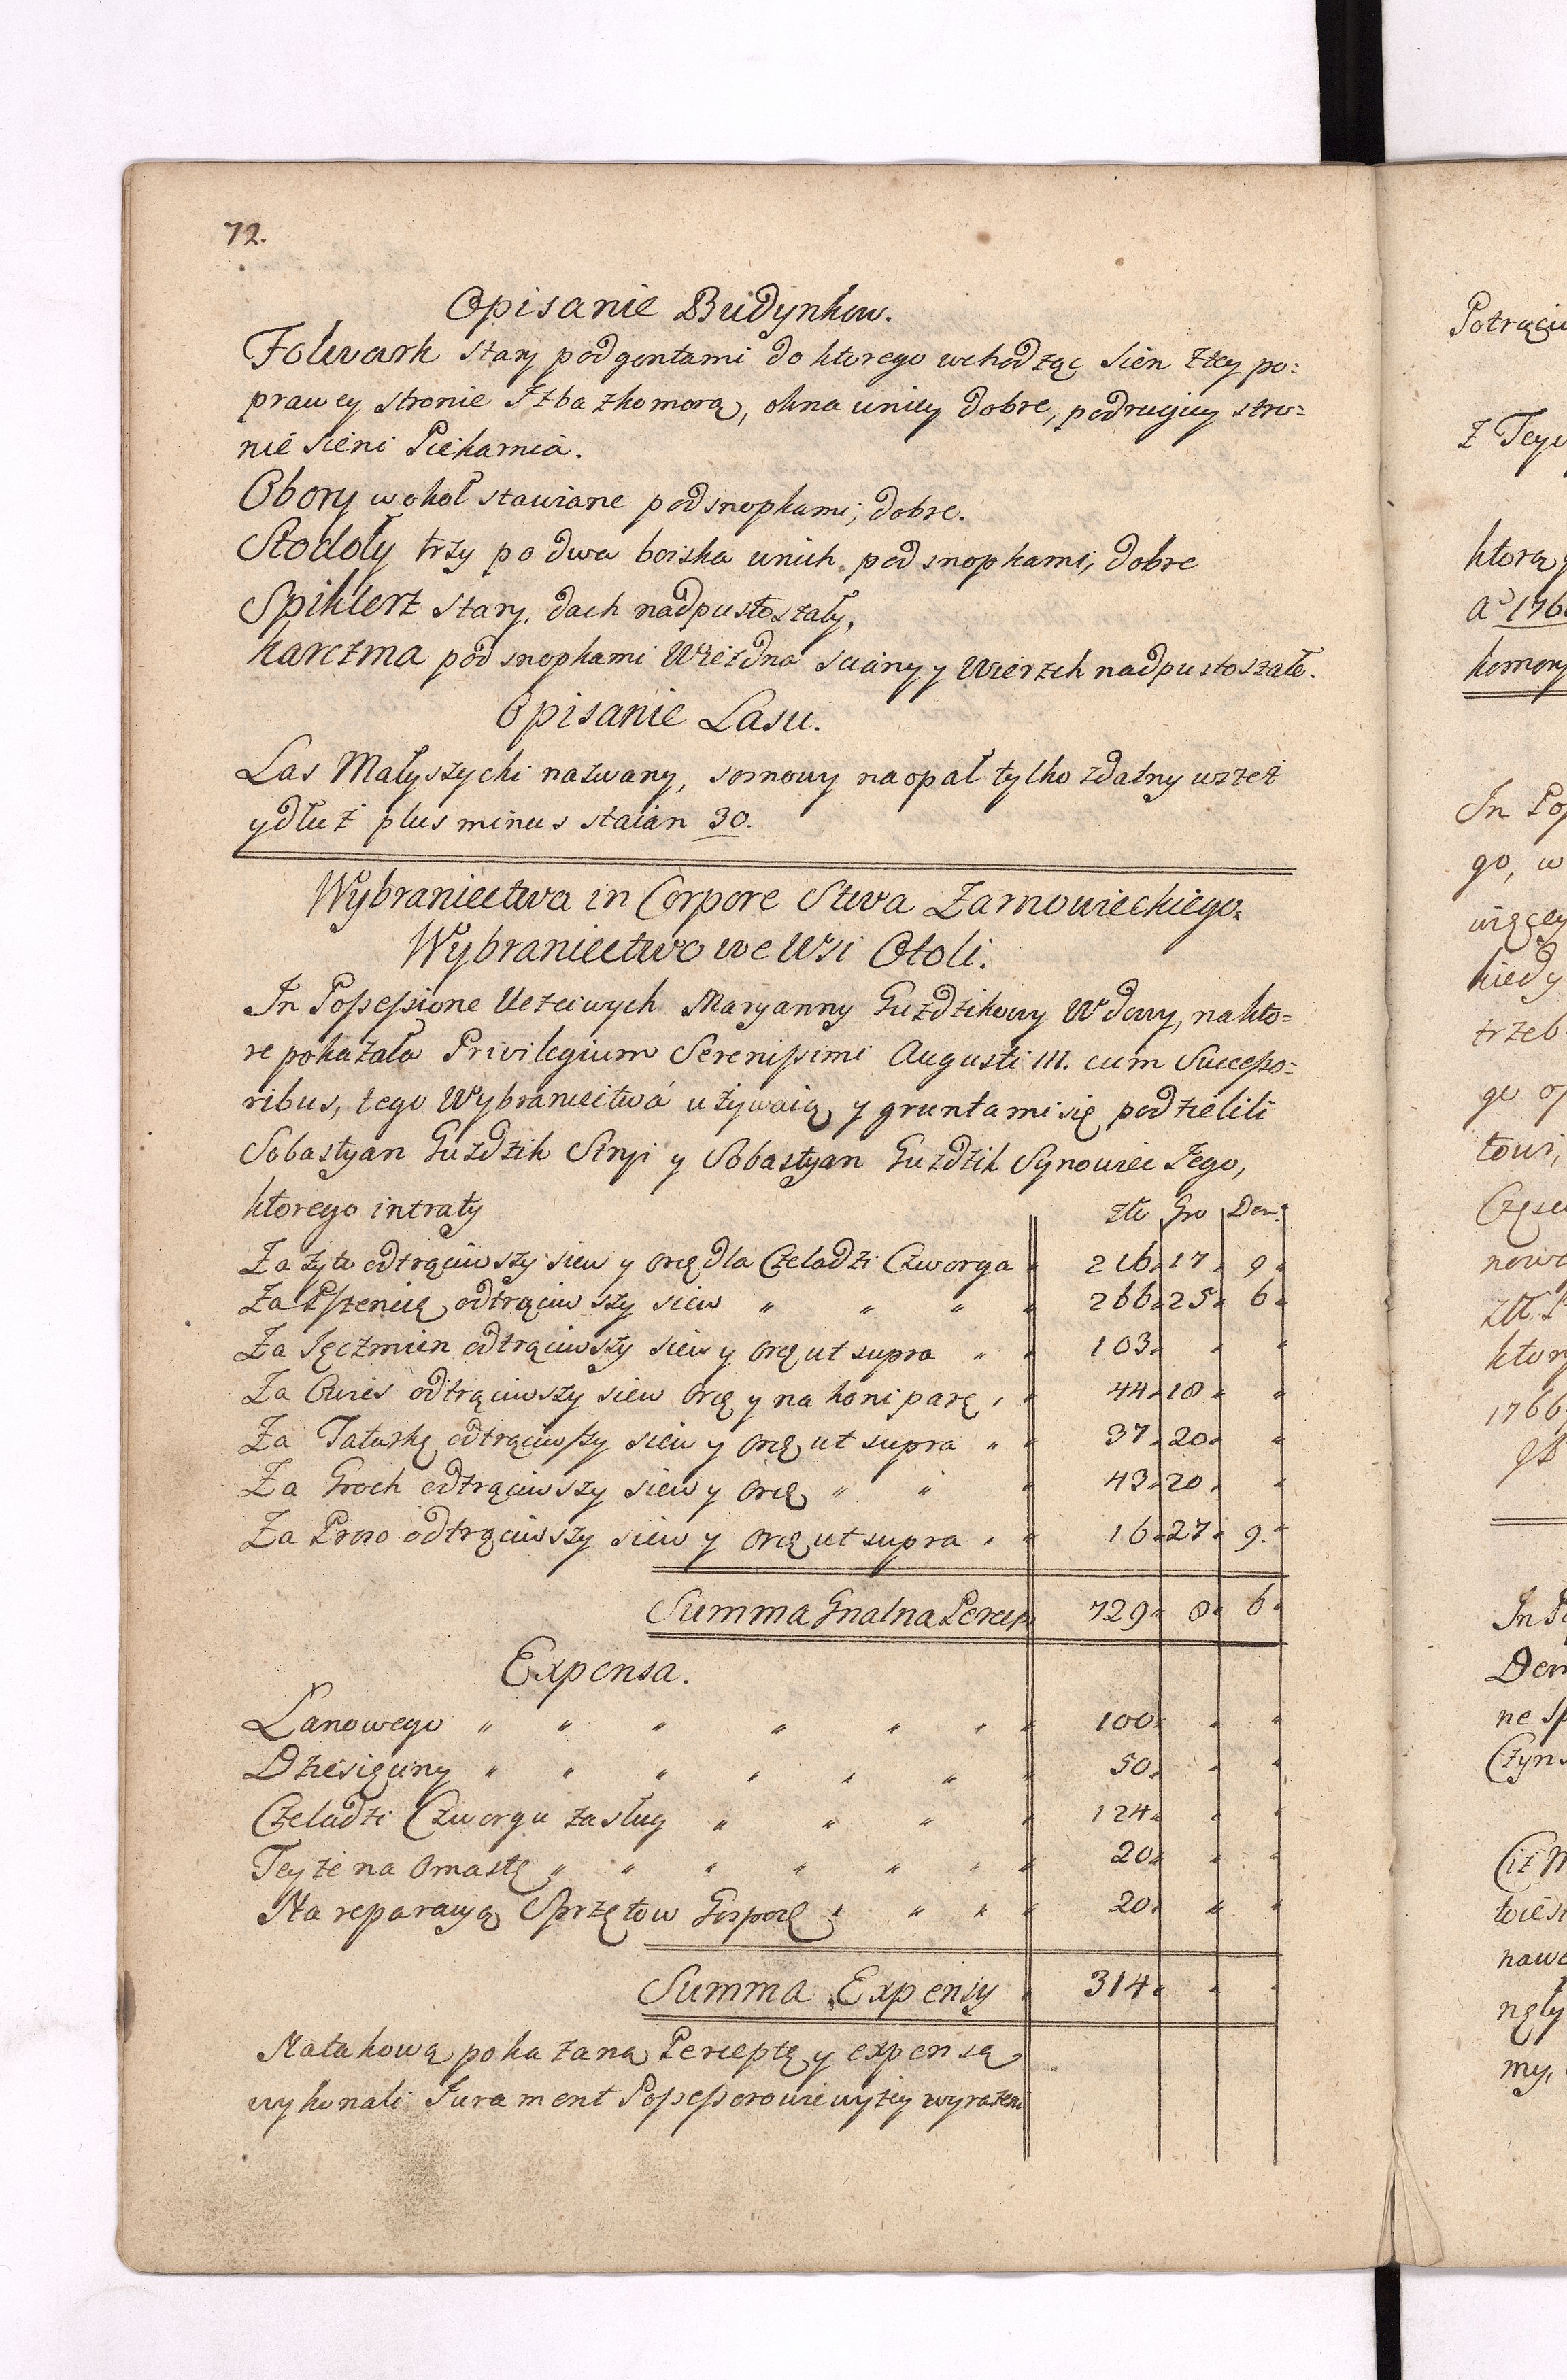 72.
Opisanie Budynkow.
Folwark stary pod gontami do ktorego wchodząc Sien z tey po=
prawey stronie Izba z komorą, okna u niey dobre, po drugiey stro=
nie sieni Piekarnia.
Obory wokoł stawiane pod snopkami, dobre.
Stodoły trzy po dwa boiska u nich pod snopkami, dobre
Spiklerz stary, dach nadpustoszały,
Karczma pod snopkami Wiezdna sciany y Wierzch nadpustoszałe.
Opisanie Lasu.
Las Małyszycki nazwany, sosnowy na opał tylko zdatny wszeż
y dłuż plus minus staian 30.
Wybraniectwa in Corpore Stwa Żarnowieckiego.
Wybraniectwo we Wsi Otoli.
In Possessione Uczciwych Maryanny Guzdzikowy Wdowy, na kto=
re pokazała Privilegium Serenissimi Augusti III. cum Successo=
ribus, tego Wybraniectwa używaią y gruntami się podzielili
Sobastyan Guzdzik Stryi y Sobastyan Guzdzik Synowiec Jego,
ktorego intraty złł Gro Den.
Za żyto odtrąciwszy siew y Orę dla Czeladzi Czworga 216 17 9
Za Pszenicę odtrąciwszy siew " " " 266 25 6
Za Jęczmien odtrąciwszy siew y Orę ut supra " 103 " "
Za Owies odtrąciwszy siew Orę y na koni parę " 44 18 "
Za Tatarkę odtrąciwszy siew y Orę ut supra " 37 20 "
Za Groch odtrąciwszy siew y Orę " " 43 20 "
Za Proso odtrąciwszy siew y Orę ut supra " 16 27 9.
Summa Gnalna Percep 729 8 6
Expensa.
Łanowego " " " " " " 100 " "
Dziesięciny " " " " " " 50 " "
Czeladzi Czworgu zasług " " " 124 " "
Teyże na Omastę " " " " " " 20 " "
Na reparacyą Sprzętow Gospod " " " 20 " "
Summa Expensy 314 " "
Na takową pokazaną Perceptę y expensą
wykonali Jurament Possessorowie wyżey wyrażeni
Potrąciw
Z Teyż
ktorą
Ao 176
komory
In Pos
go, w
więcey
kiedy
trzeb
go
towi,
nowe
ktory
1766
In P
Dem
ne
Czyn
wies
nawe
my,